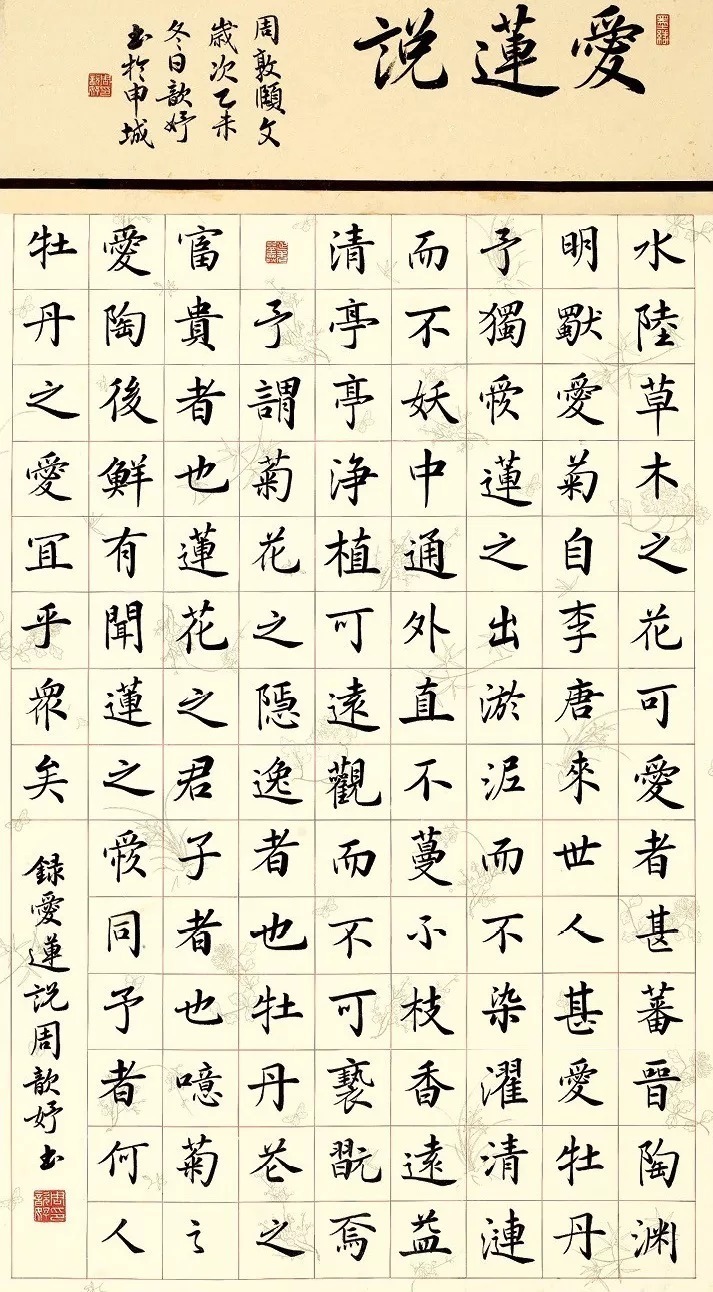 愛蓮說
周敦頤文
歲次乙未
冬日歆妤
書於申城
水陸草木之花可愛者甚蕃晉陶渊
明獨愛菊自李唐來世人甚愛牡丹
予獨愛蓮之出淤泥而不染濯清漣
而不妖中通外直不蔓不枝香遠益
清亭亭淨植可遠觀而不可褻翫焉
予謂菊花之隱逸者也牡丹花之
富貴者也蓮花之君子者也噫菊之
愛陶後鮮有聞蓮之愛同予者何人
牡丹之愛宜乎眾矣
録愛蓮説周歆妤書